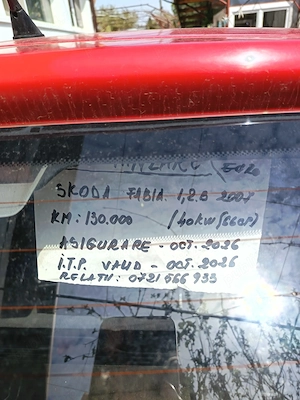 EURO
SKODA FABIA 1,2.B 2007
KM: 130.000 /40KW(56CP)
ASIGURARE - OCT. 2026
I.T.P. VALID - OCT. 2026
RELATII: 0721 566 933